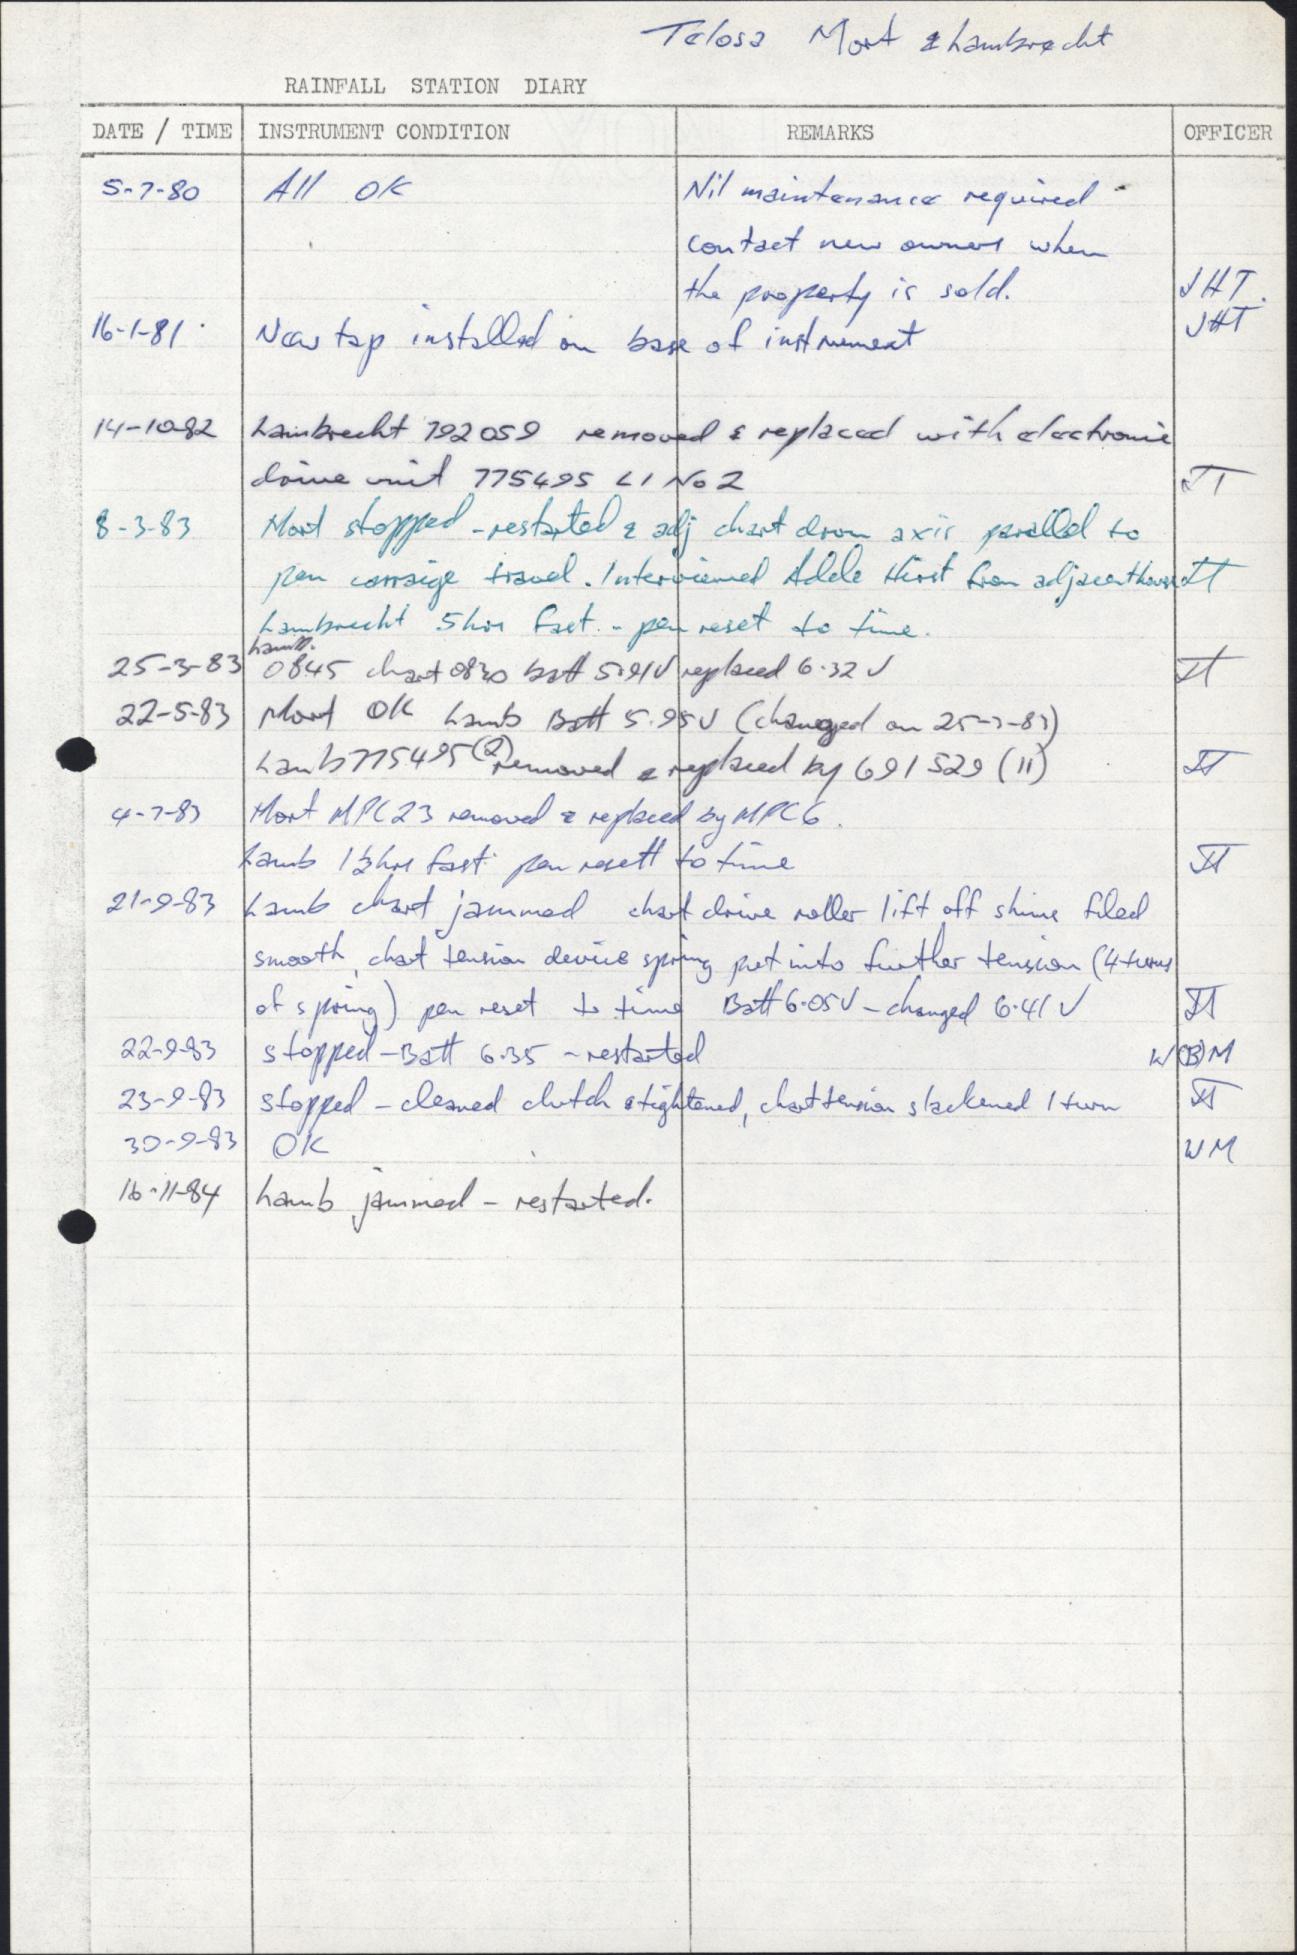 Telosa Mort & Lambrecht
RAINFALL STATION DIARY
DATE / TIME INSTRUMENT CONDITION REMARKS OFFICER
5-7-80 All OK Nil maintenance required
contact new owners when
the property is sold. JHT.
16-1-81 New tap installed on base of instrument JHT
14-10-82 Lambrecht 792059 removed & replaced with electronic
drive unit 775495 L1 No 2 JT
8-3-83 Mort stopped - restarted & adj chart drum axis parallel to
pen carraige travel. Interviewed Adele Hirst from adjacent house JT
Lambrecht 5 hrs fast - pen reset to time.
Lamb.
25-3-83 0845 chart 0830 batt 5.91V replaced 6.32 V JT
22-5-83 Mort OK Lamb Batt 5.95V (changed on 25-3-83)
Lamb 775495 (2) removed & replaced by 691529 (11) JT
4-7-83 Mort MPC23 removed & replaced by MPC6.
Lamb 1½ hrs fast pen resett to time JT
21-9-83 Lamb chart jammed chart drive roller lift off shims filed
smooth, chart tension device spring put into further tension (4 turns
of spring) pen reset to time Batt 6.05V - changed 6.41 V JT
22-9-83 stopped - Batt 6.35 - restarted W(B)M
23-9-83 stopped - cleaned clutch & tightened, chart tension slackened 1 turn JT
30-9-83 OK WM
16-11-84 Lamb jammed - restarted.